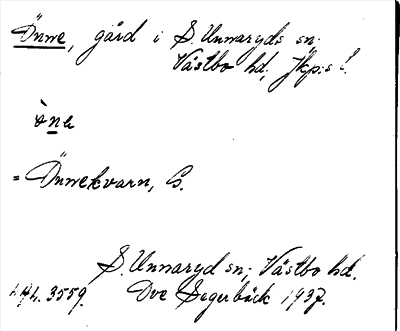 Önne, gård i S. Unnaryds sn.
Västbo hd, Jkp:s l.
ò̀ne
= Önnekvarn, G.
S. Unnaryd sn; Västbo hd.
Ove Segerbäck 1937.